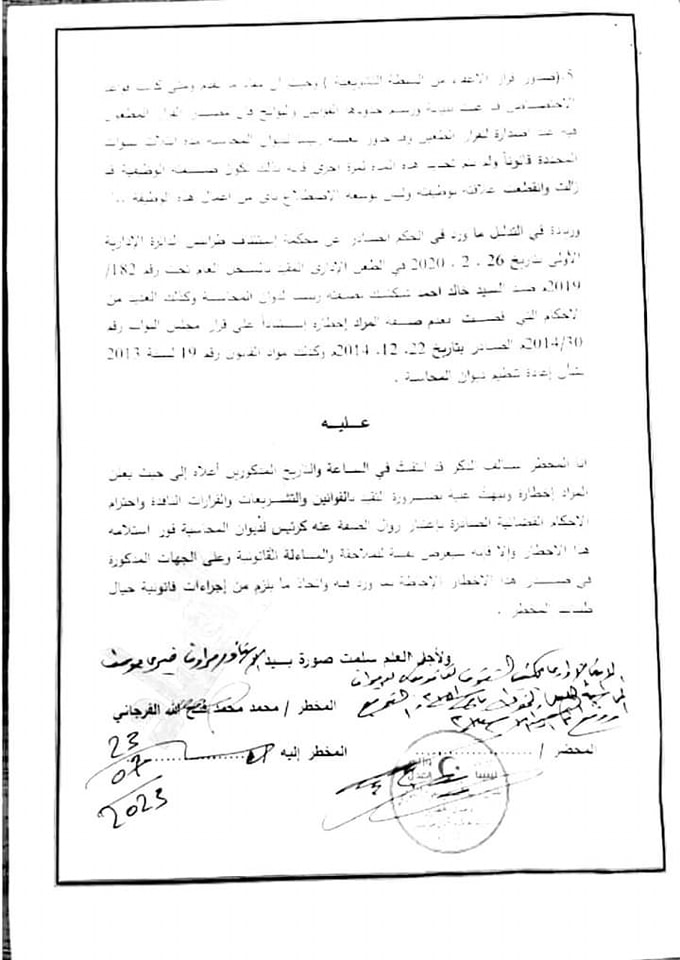 5.(صدور قرار الاعفاء من السلطة التشريعية ) وحيث أن مفاد ما تقدم ومتى كانت قواعد
الاختصاص قد عنت ببيانه ورسم حدودها القوانين واللوائح فإن مصدر القرار المطعون
فيه عند اصداره للقرار الطعين وقد جاوز بصفته رئيسا لديوان المحاسبة مدة الثلاث سنوات
المحددة قانوناً ولم يتم تجديد هذه المدة لمرة اخرى فإنه بذلك تكون صفته الوظيفية قد
زالت وانقطعت علاقته بوظيفته وليس بوسعه الاضطلاع بأي من اعمال هذه الوظيفة ...
وزيادة في التدليل ما ورد في الحكم الصادر عن محكمة إستئناف طرابلس الدائرة الإدارية
الأولى بتاريخ 26 ، 2 ، 2020 في الطعن الإداري المقيد بالسجل العام تحت رقم 182/
2019م ضد السيد خالد احمد شكشك بصفته رئيسا لديوان المحاسبة وكذلك العديد من
الاحكام التي قضت بعدم صفة المراد إخطاره إستناداً على قرار مجلس النواب رقم
2014/30م الصادر بتاريخ 22، 12، 2014م وكذلك مواد القانون رقم 19 لسنة 2013
بشأن إعادة تنظيم ديوان المحاسبة .
عليه
انا المحضر سالف الذكر قد انتقلت في الساعة والتاريخ المذكورين أعلاه إلى حيث يعلن
المراد إخطاره ونبهت عليه بضرورة التقيد بالقوانين والتشريعات والقرارات النافذة واحترام
الاحكام القضائية الصادرة بإعتبار زوال الصفة عنه كرئيس لديوان المحاسبة فور استلامه
هذا الاخطار وإلا فإنه سيعرض نفسه للملاحقة والمساءلة القانونية وعلى الجهات المذكورة
في صدر هذا الاخطار الاحاطة بما ورد فيه واتخاذ ما يلزم من إجراءات قانونية حيال
طلب المخطر .
ولأجل العلم سلمت صورة بسيد
المخطر / محمد محمد فتح الله الفرجاني
المخطر إليه
23
07
2023
المحضر /
ليبيا